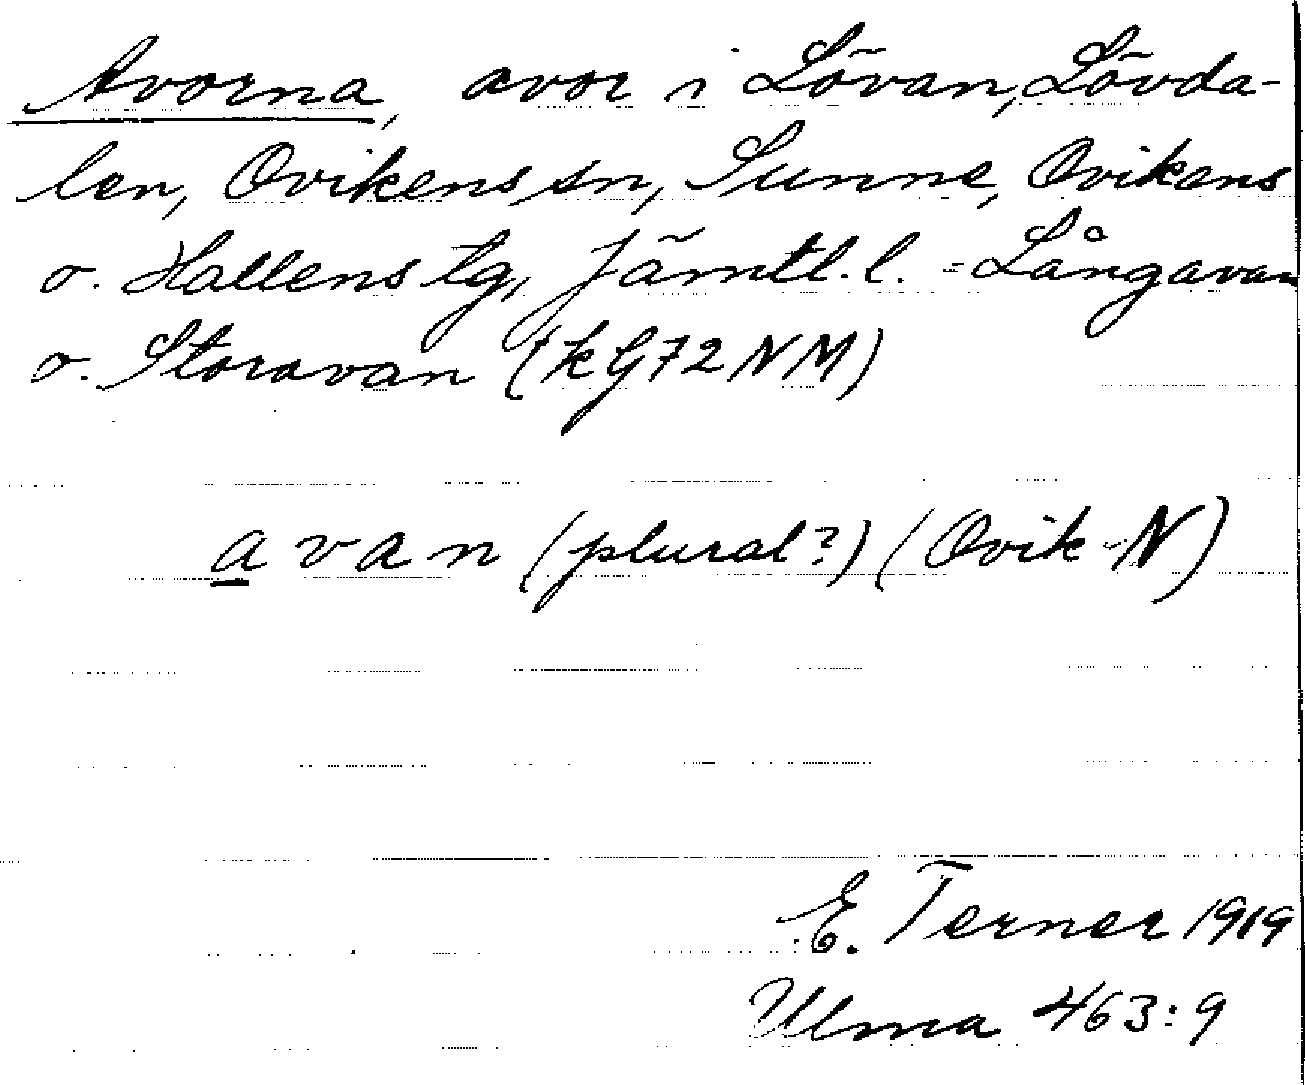 Avorna, avor i Lövan, Lövda-
len, Ovikens sn, Sunne, Ovikens
o. Hallens tg, Jämtl. l. = Långavan
o. Storavan (kG72NM)
avan (plural?) (Ovik N)
E. Terner 1919
Ulma 463:9